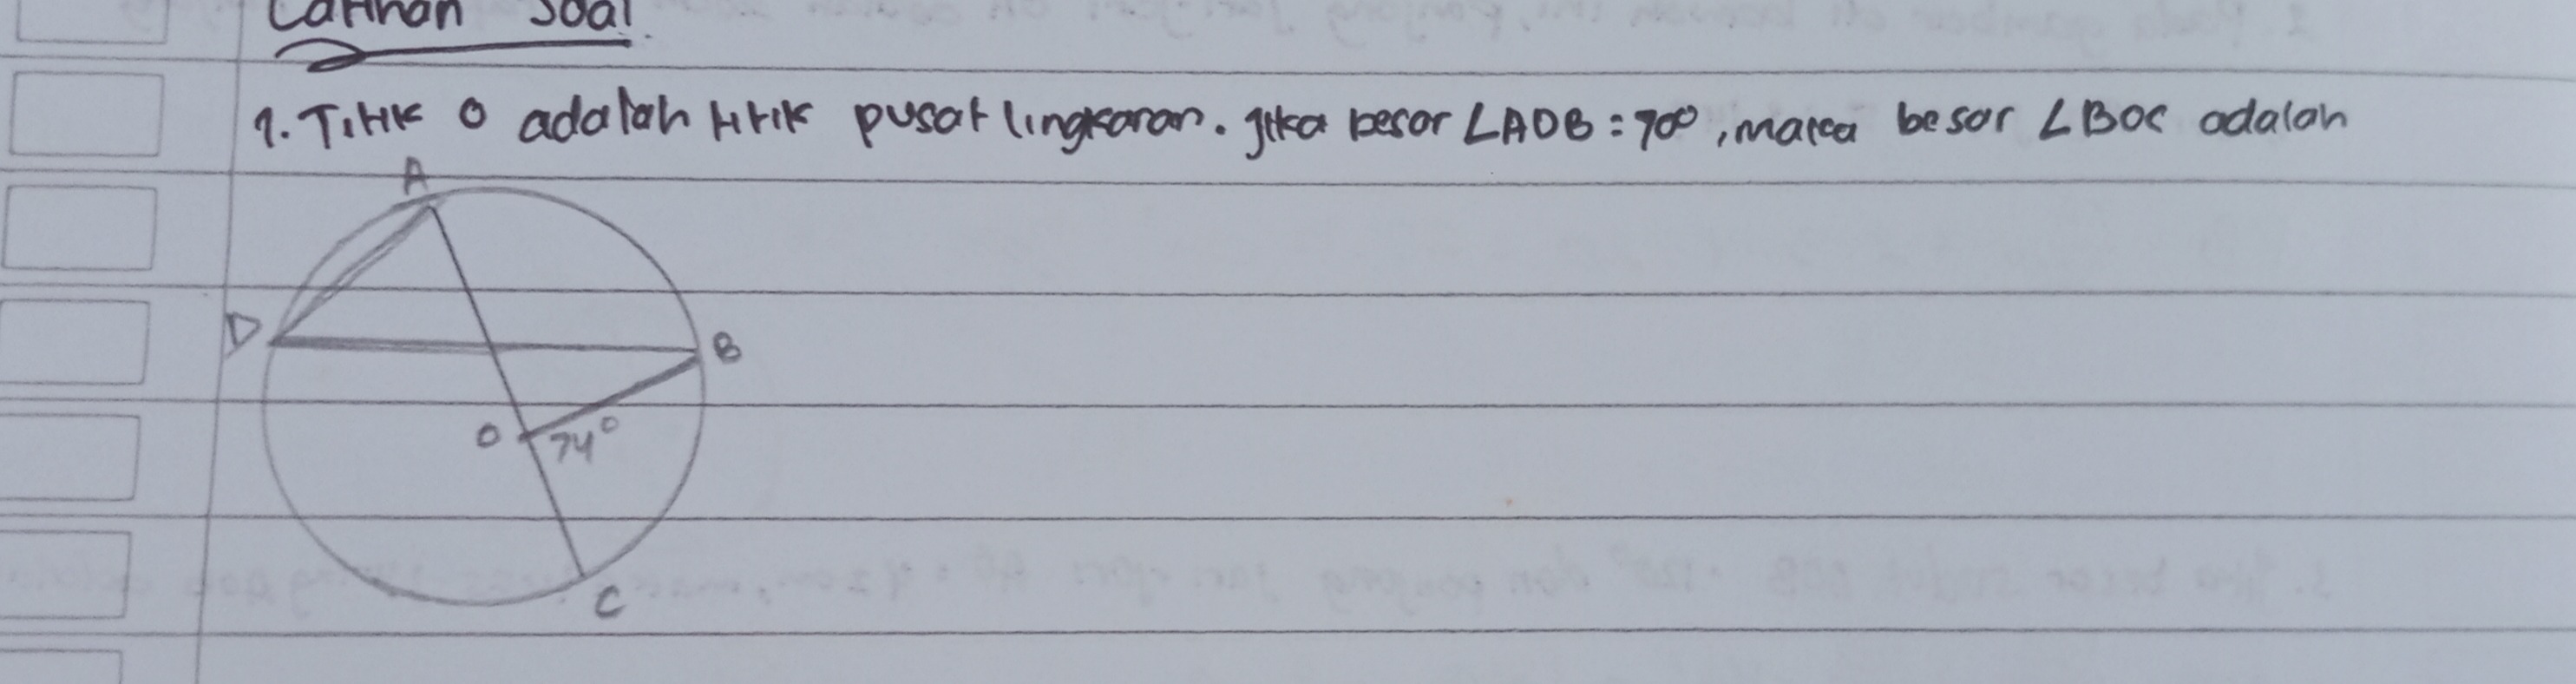 Latihan Soal
1. Titik O adalah titik pusat lingkaran. Jika besar ∠ADB = 70°, maka besar ∠BOC adalah
A
D
B
O 74°
C